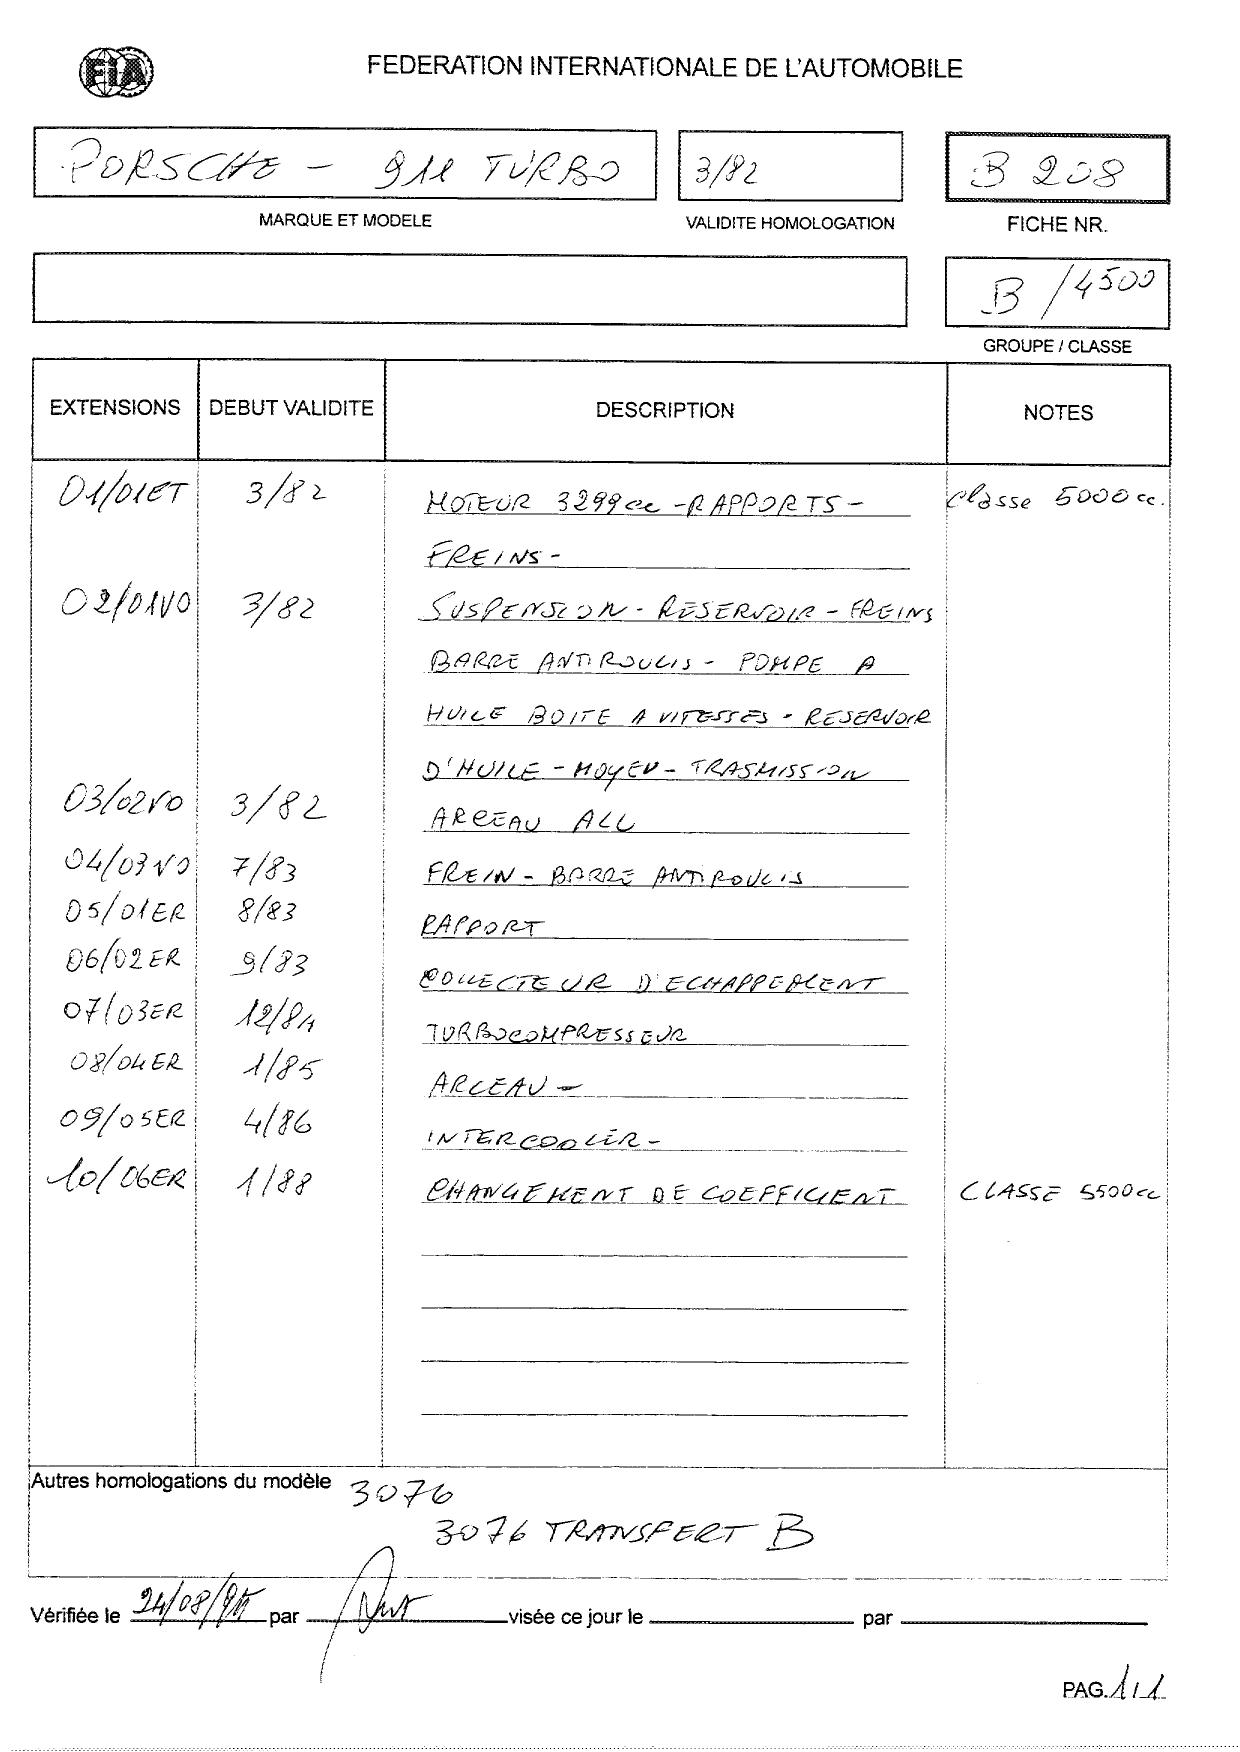 FiA
FEDERATION INTERNATIONALE DE L'AUTOMOBILE
PORSCHE - 911 TURBO
3/82
B 208
MARQUE ET MODELE
VALIDITE HOMOLOGATION
FICHE NR.
B /4500
GROUPE / CLASSE
EXTENSIONS DEBUT VALIDITE DESCRIPTION NOTES
01/01ET 3/82 MOTEUR 3299cc - RAPPORTS - Classe 5000 cc.
FREINS -
02/01VO 3/82 SUSPENSION - RESERVOIR - FREINS
BARRE ANTIROULIS - POMPE A
HUILE BOITE A VITESSES - RESERVOIR
D'HUILE - MOYEU - TRASMISSION
03/02VO 3/82 ARCEAU ALL
04/03VO 7/83 FREIN - BARRE ANTIROULIS
05/01ER 8/83 RAPPORT
06/02ER 9/83 COLLECTEUR D'ECHAPPEMENT
07/03ER 12/84 TURBOCOMPRESSEUR
08/04ER 1/85 ARCEAU -
09/05ER 4/86 INTERCOOLER -
10/06ER 1/88 CHANGEMENT DE COEFFICIENT CLASSE 5500cc
Autres homologations du modèle 3076
3076 TRANSFERT B
Vérifiée le 24/08/95 par visée ce jour le par
PAG. 1/1